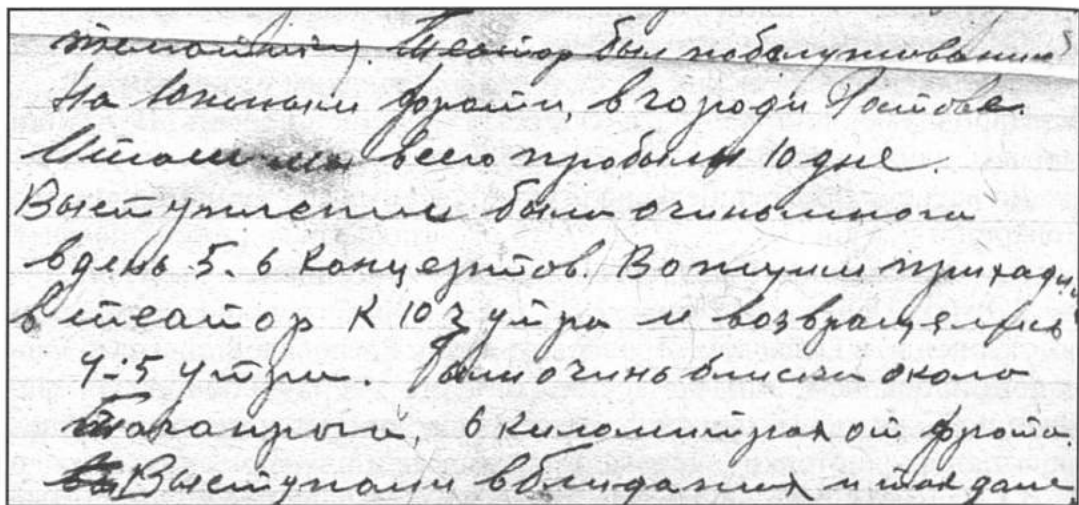 Театор был пообслуживанию
на Южным фронти, вгороди Ростове
мы всего пробыли 10 дне.
Выступление было очиньмного
вдень 5. 6 концертов. приходи
втеатор к 10 з утра и возвращались
4-5 утра. Были очинь блиски около
Таганрога, 6 километрах от фронта.
Выступали вблидажах и так дале